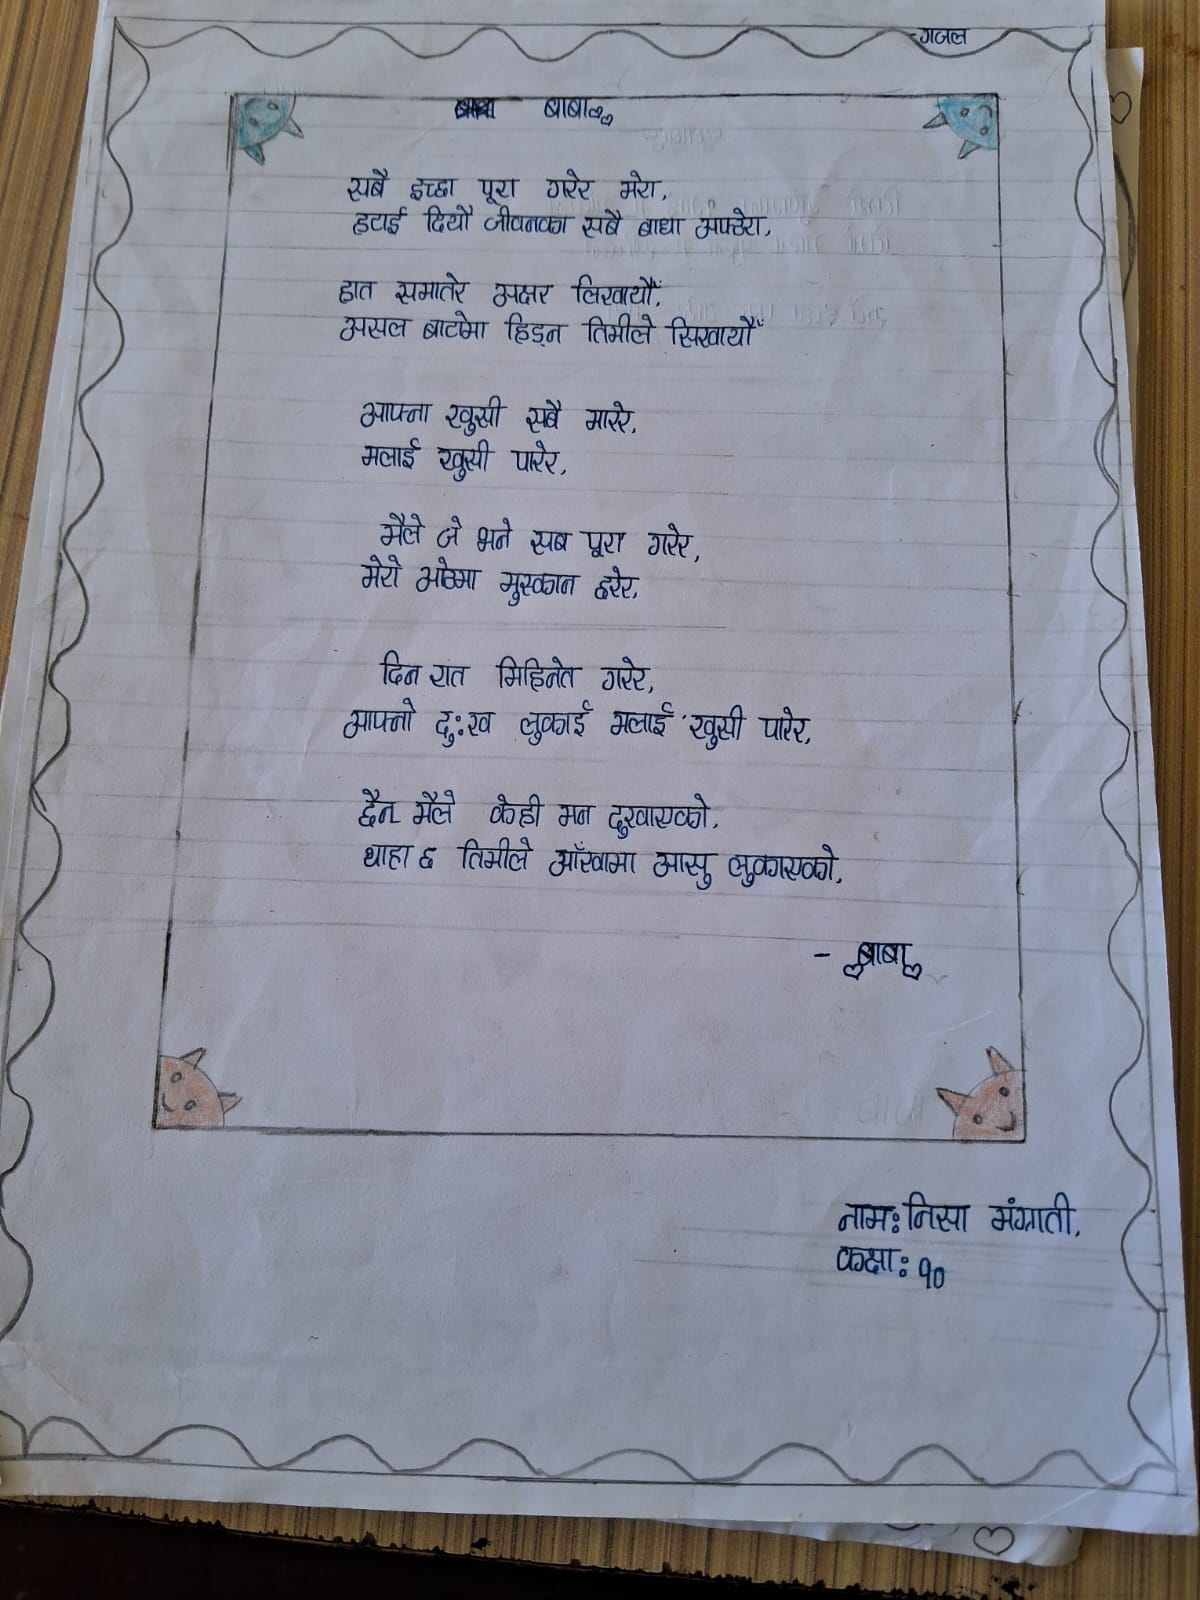 - गजल
बाबा
सबै इच्छा पूरा गरेर मेरा,
हटाई दियौ जीवनका सबै बाधा अफ्ठेरा,
हात समातेर अक्षर लिखायौँ,
असल बाटोमा हिड्न तिमीले सिखायौँ
आफ्ना खुसी सबै मारेर,
मलाई खुसी पारेर,
मैले जे भने सब पूरा गरेर,
मेरो ओठमा मुस्कान छरेर,
दिन रात मिहिनेत गरेर,
आफ्नो दुःख लुकाई मलाई खुसी पारेर,
छैन मैले केही मन दुखाएको,
थाहा छ तिमीले आँखामा आसु लुकाएको,
- बाबा
नामः निसा मंग्राती,
कक्षाः १०